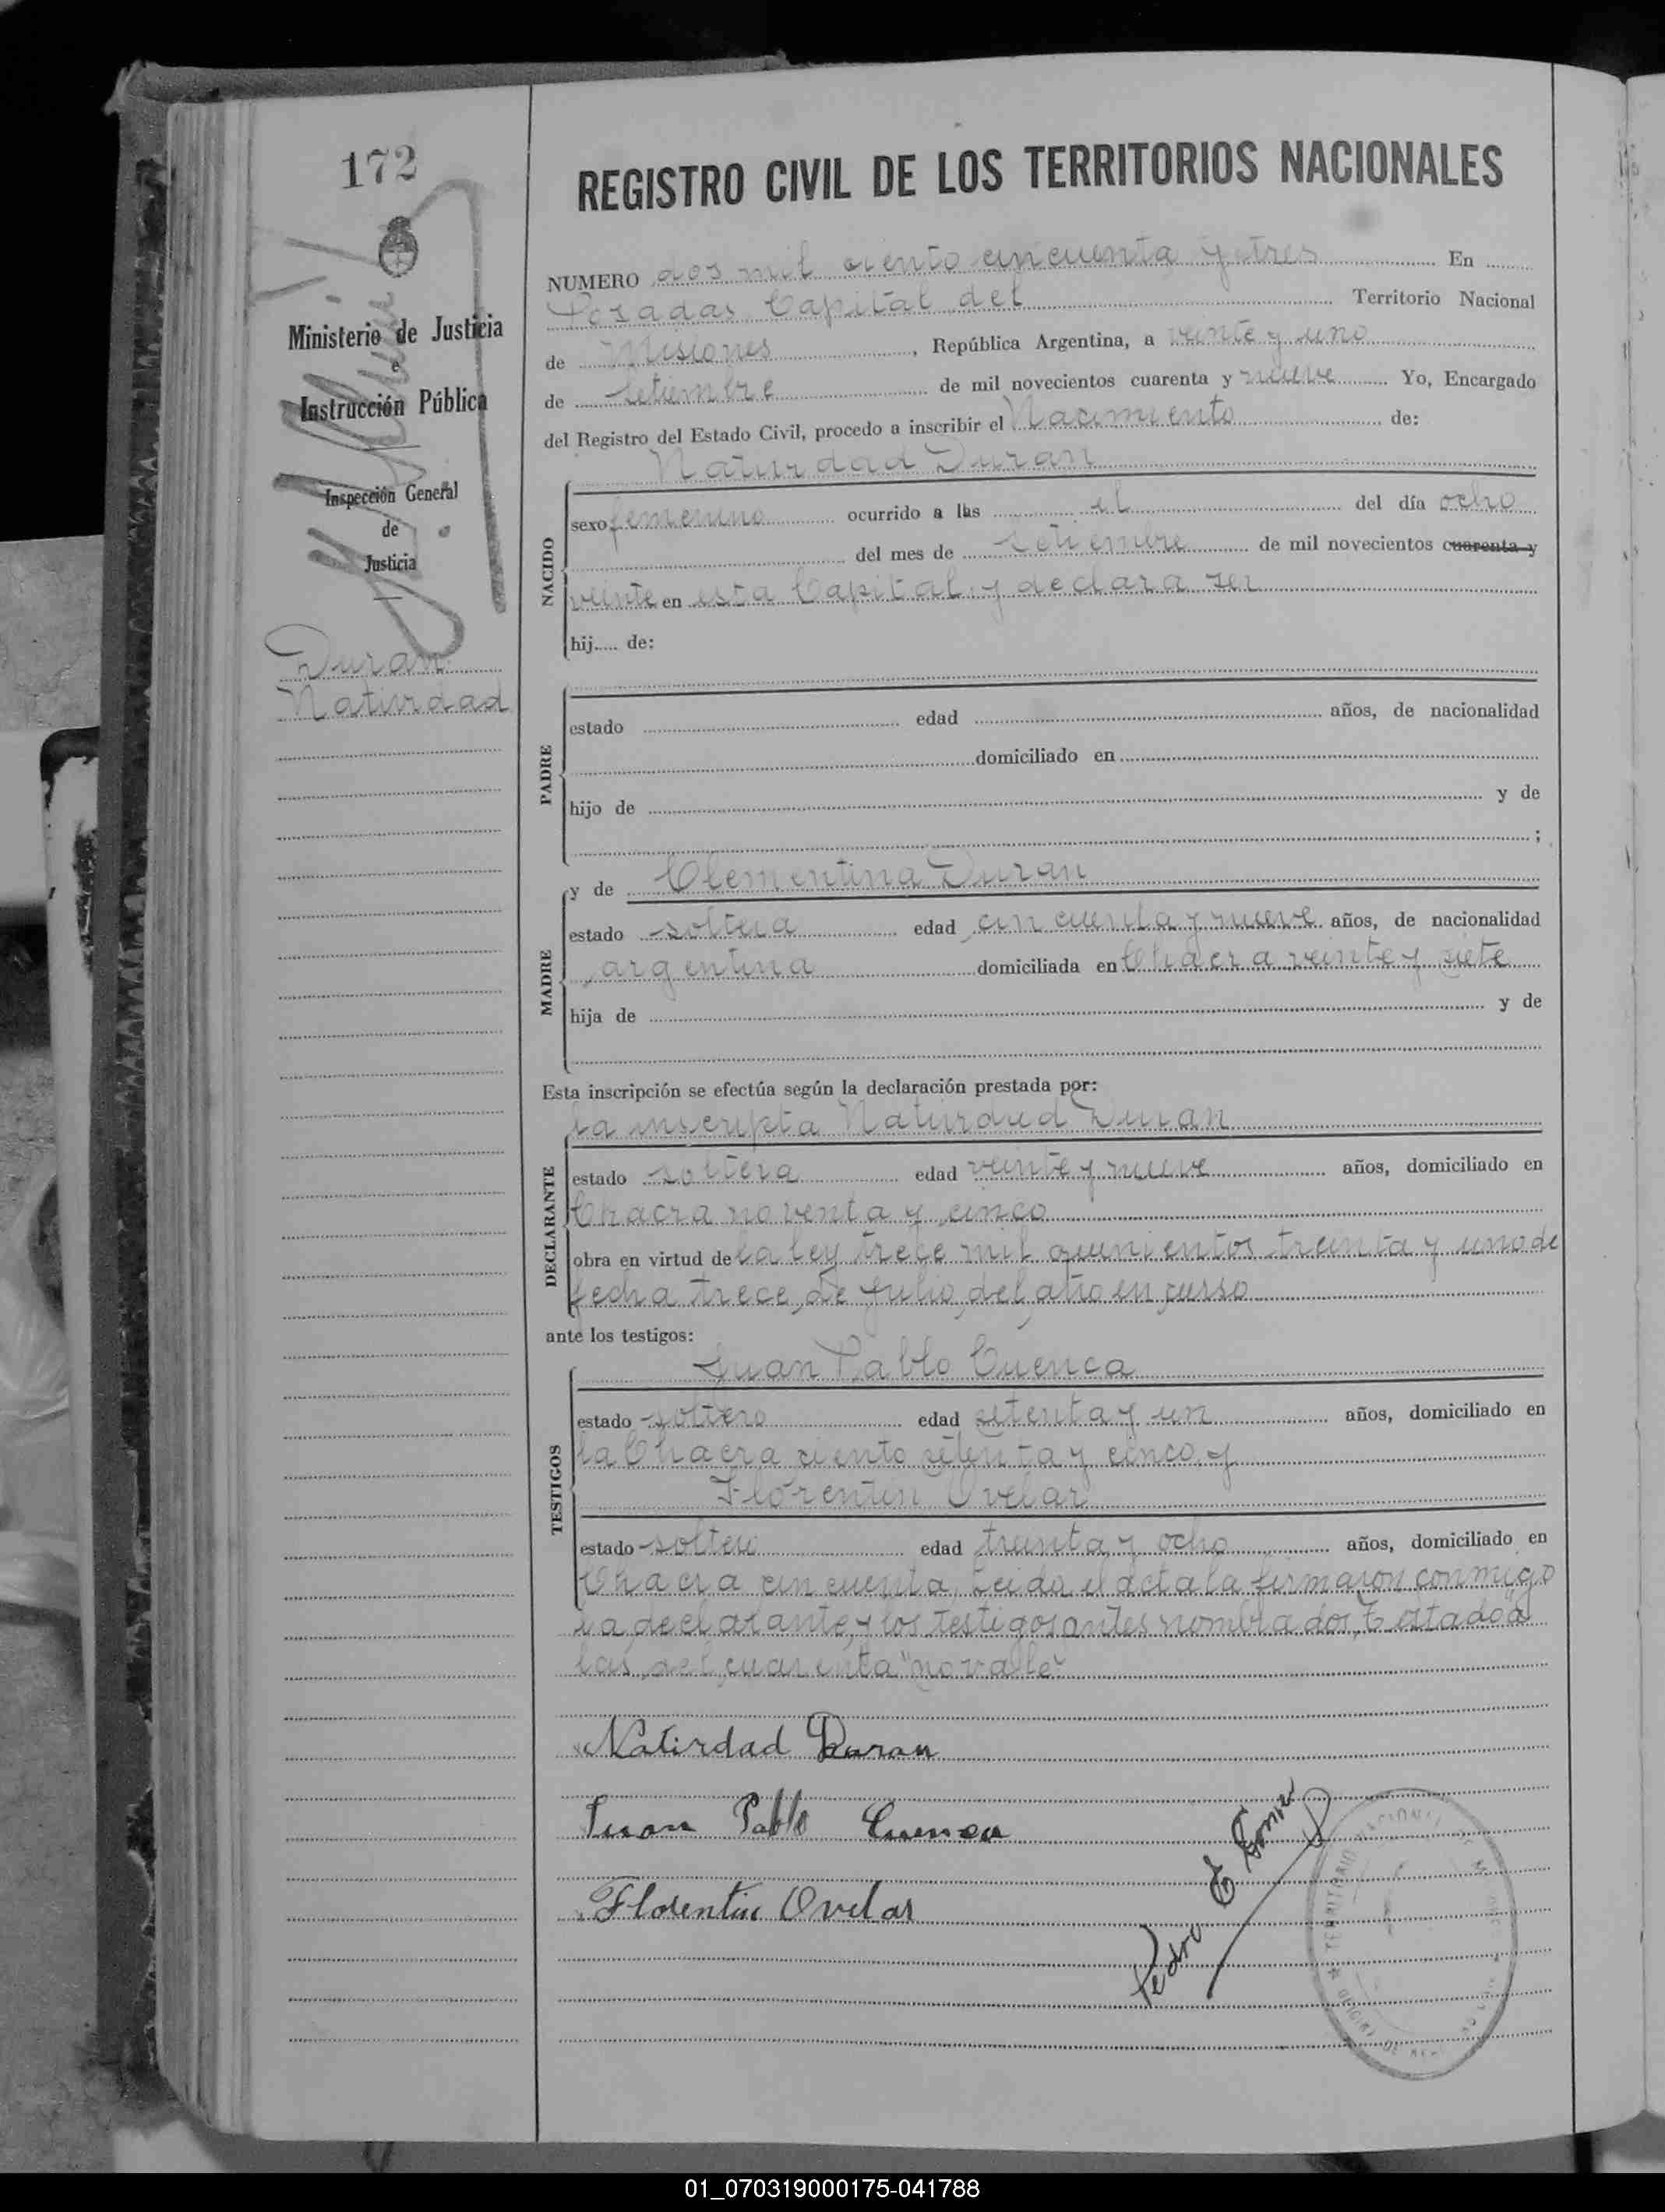 172
REGISTRO CIVIL DE LOS TERRITORIOS NACIONALES
Ministerio de Justicia
e
Instrucción Pública
Inspección General
de
Justicia
Duran
Natividad
NUMERO dos mil ciento cincuenta y tres En
Posadas Capital del Territorio Nacional
de Misiones, República Argentina, a veinte y uno
de setiembre de mil novecientos cuarenta y nueve Yo, Encargado
del Registro del Estado Civil, procedo a inscribir el Nacimiento de:
Natividad Duran
NACIDO
sexo femenino ocurrido a las el del día ocho
del mes de setiembre de mil novecientos cuarenta y
veinte en esta Capital y declara ser
hij.... de:
PADRE
estado edad años, de nacionalidad
domiciliado en
hijo de y de
;
MADRE
y de Clementina Duran
estado soltera edad cincuenta y nueve años, de nacionalidad
argentina domiciliada en Chacra veinte y siete
hija de y de
Esta inscripción se efectúa según la declaración prestada por:
la inscripta Natividad Duran
DECLARANTE
estado soltera edad veinte y nueve años, domiciliado en
Chacra noventa y cinco
obra en virtud de la ley trece mil quinientos treinta y uno de
fecha trece, de Julio, del año en curso
ante los testigos:
Juan Pablo Cuenca
TESTIGOS
estado soltero edad setenta y un años, domiciliado en
la Chacra ciento setenta y cinco y
Florentin Ovelar
estado soltero edad treinta y ocho años, domiciliado en
Chacra cincuenta, Leida el acta la firmaron conmigo
la declarante, y los testigos antes nombrados, Testado "a
las, del, cuarenta" no vale.
Natividad Duran
Juan Pablo Cuenca
Florentin Ovelar
Pedro E
TERRITORIO NACIONAL DE
01_070319000175-041788